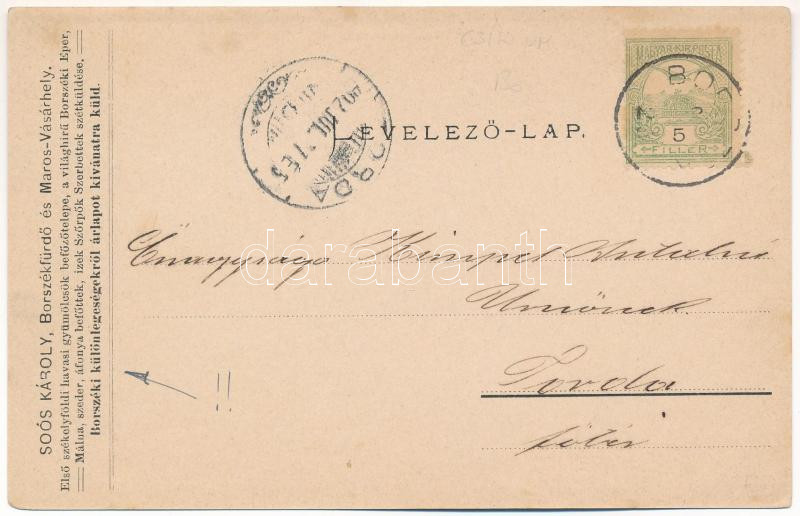 SOÓS KÁROLY, Borszékfürdő és Maros-Vásárhely.
Első székelyföldi havasi gyümölcsök befőzőtelepe, a világhírű Borszéki Eper,
Málna, szeder, áfonya befőttek, izek Szörpök Szerbettek szétküldése,
Borszéki különlegeségekről árlapot kivánatra küld.
LEVELEZŐ-LAP.
MAGYAR KIR. POSTA
5
FILLER
Őnagysága Kimpel Antalné
Urnőnek
Torda
főtér
!!
darabanth